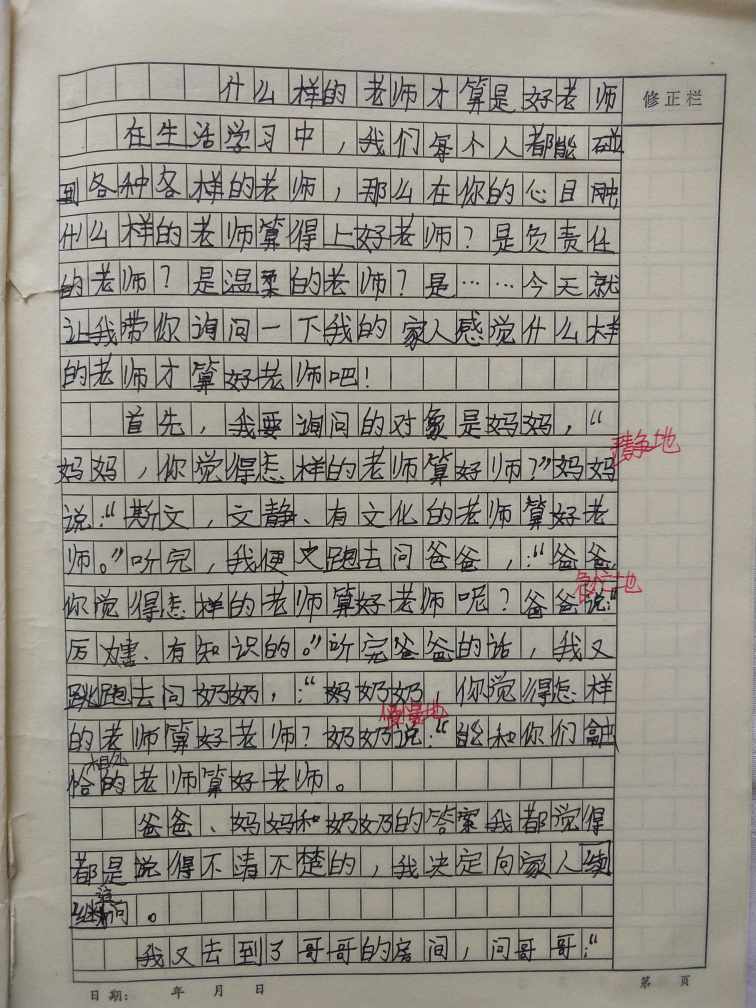 什么样的老师才算是好老师
修正栏
在生活学习中，我们每个人都能碰
到各种各样的老师，那么在你的心目中
什么样的老师算得上好老师？是负责任
的老师？是温柔的老师？是……今天就
让我带你询问一下我的家人感觉什么样
的老师才算好老师吧！
首先，我要询问的对象是妈妈，“
妈妈，你觉得怎样的老师算好师？”妈妈
静地
说：“斯文，文静、有文化的老师算好老
师。”听完，我便跑去问爸爸，：“爸爸，
你觉得怎样的老师算好老师呢？爸爸说：“
地
厉害、有知识的。”听完爸爸的话，我又
跳跑去问奶奶，：“奶奶，你觉得怎样
的老师算好老师？奶奶说：“能和你们融
地
恰相处的老师算好老师。
爸爸、妈妈和奶奶的答案我都觉得
都是说得不清不楚的，我决定向家人继
续问。
我又去到了哥哥的房间，问哥哥：“
日期： 年 月 日
第 页